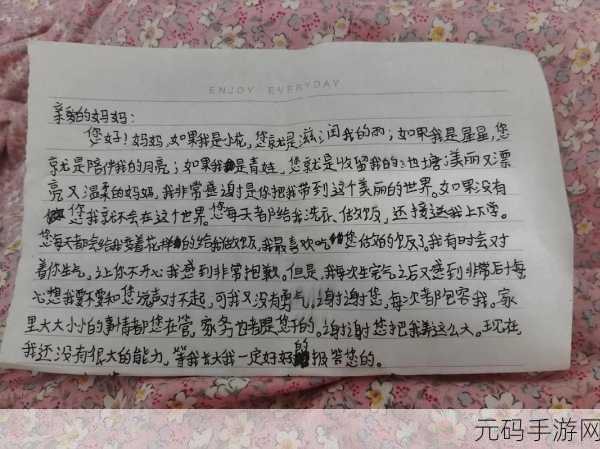 ENJOY EVERYDAY
亲爱的妈妈:
您好!妈妈,如果我是小花,您就是滋润我的雨;如果我是星星,您
就是陪伴我的月亮;如果我是青蛙,您就是收留我的池塘;美丽又漂
亮又温柔的妈妈,我非常感谢是你把我带到这个美丽的世界。如果没有
您我就不会在这个世界。您每天都给我洗衣、做饭,还接送我上下学。
您每天都会给我变着花样的给我做饭,我最喜欢吃您做的饭了。我有时会对
着你生气,让你不开心我感到非常抱歉。但是,我每次生完气之后又感到非常后悔
心想我要不要和您说声对不起,可我又没有勇气,谢谢您,每次都包容我。家
里大大小小的事情都您在管,家务也都是您干的。谢谢您把我养这么大。现在
我还没有很大的能力,等我长大我一定好好的报答您的。
元码手游网